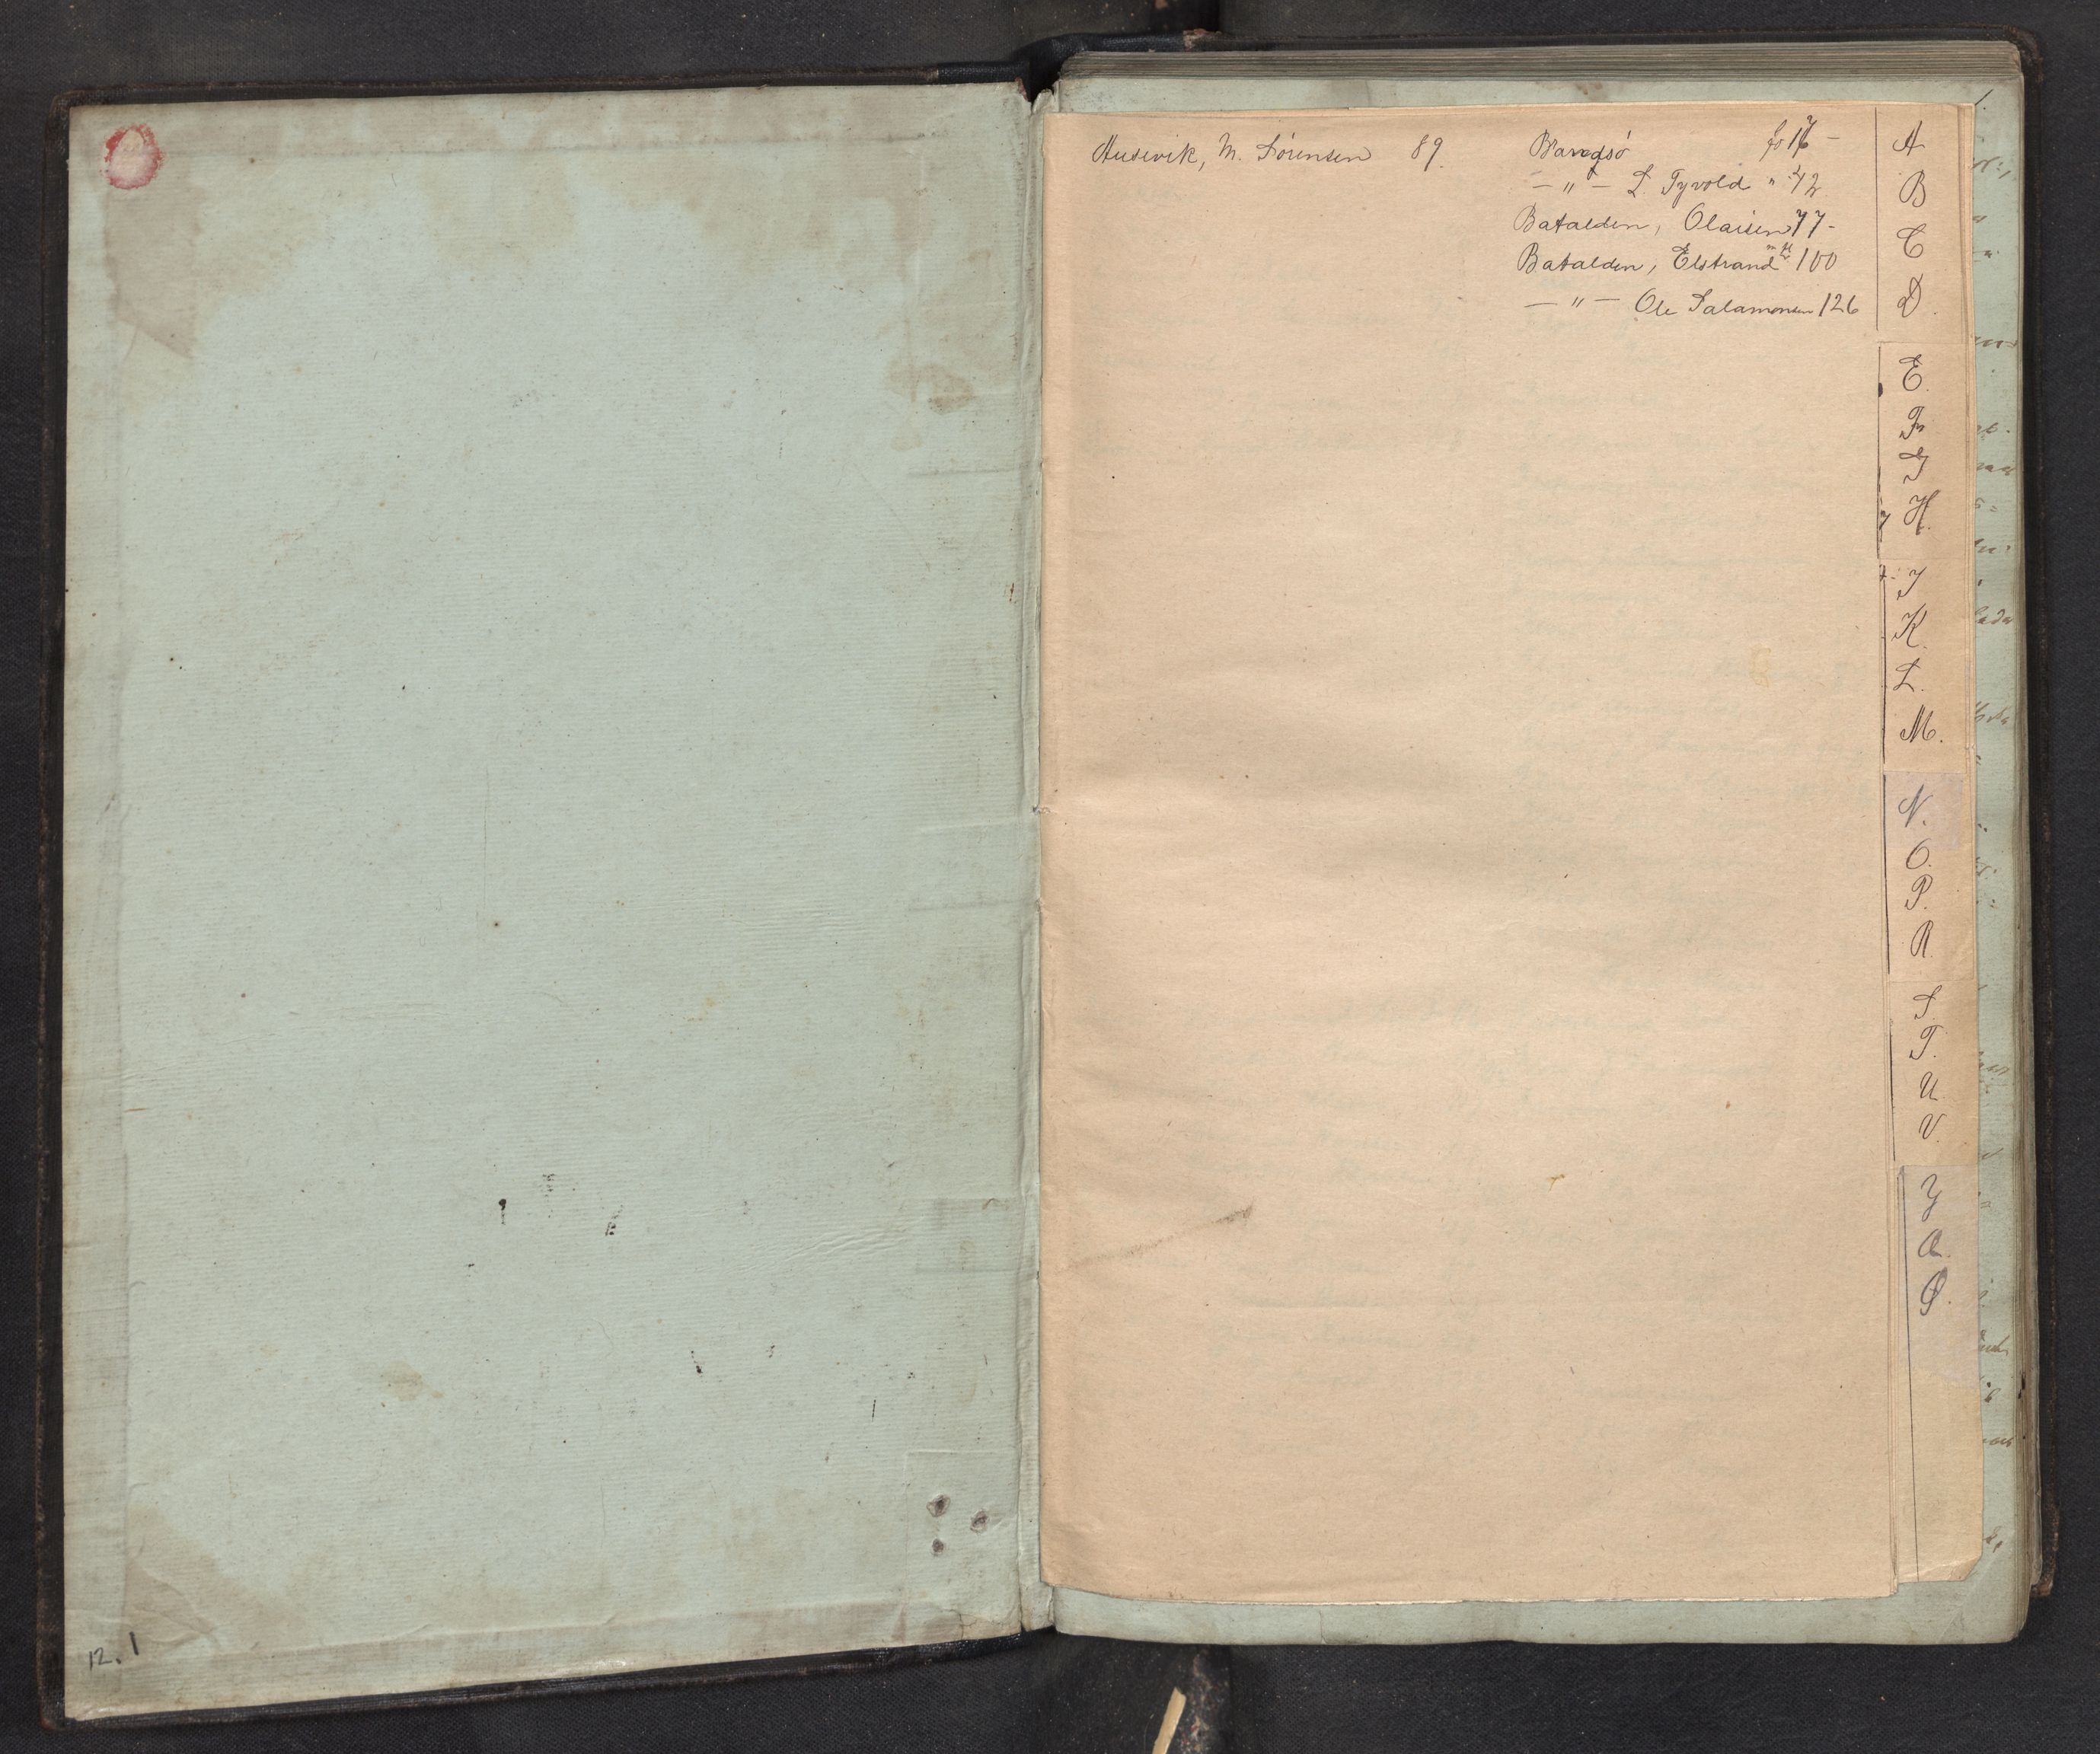 Ausevik, M. Sørensen 89.
Barmgsö fo 16 -
- " - L. Tyvold " 42
Batalden, Olaisen 77-
Batalden, Elstrand 100
- " - Ole Salamonsen 126
A
B
C
D.
E.
F.
G
H.
I
K.
L.
M.
N.
O.
P.
R.
S.
T.
U
V.
Y
Æ.
Ø.
12.1